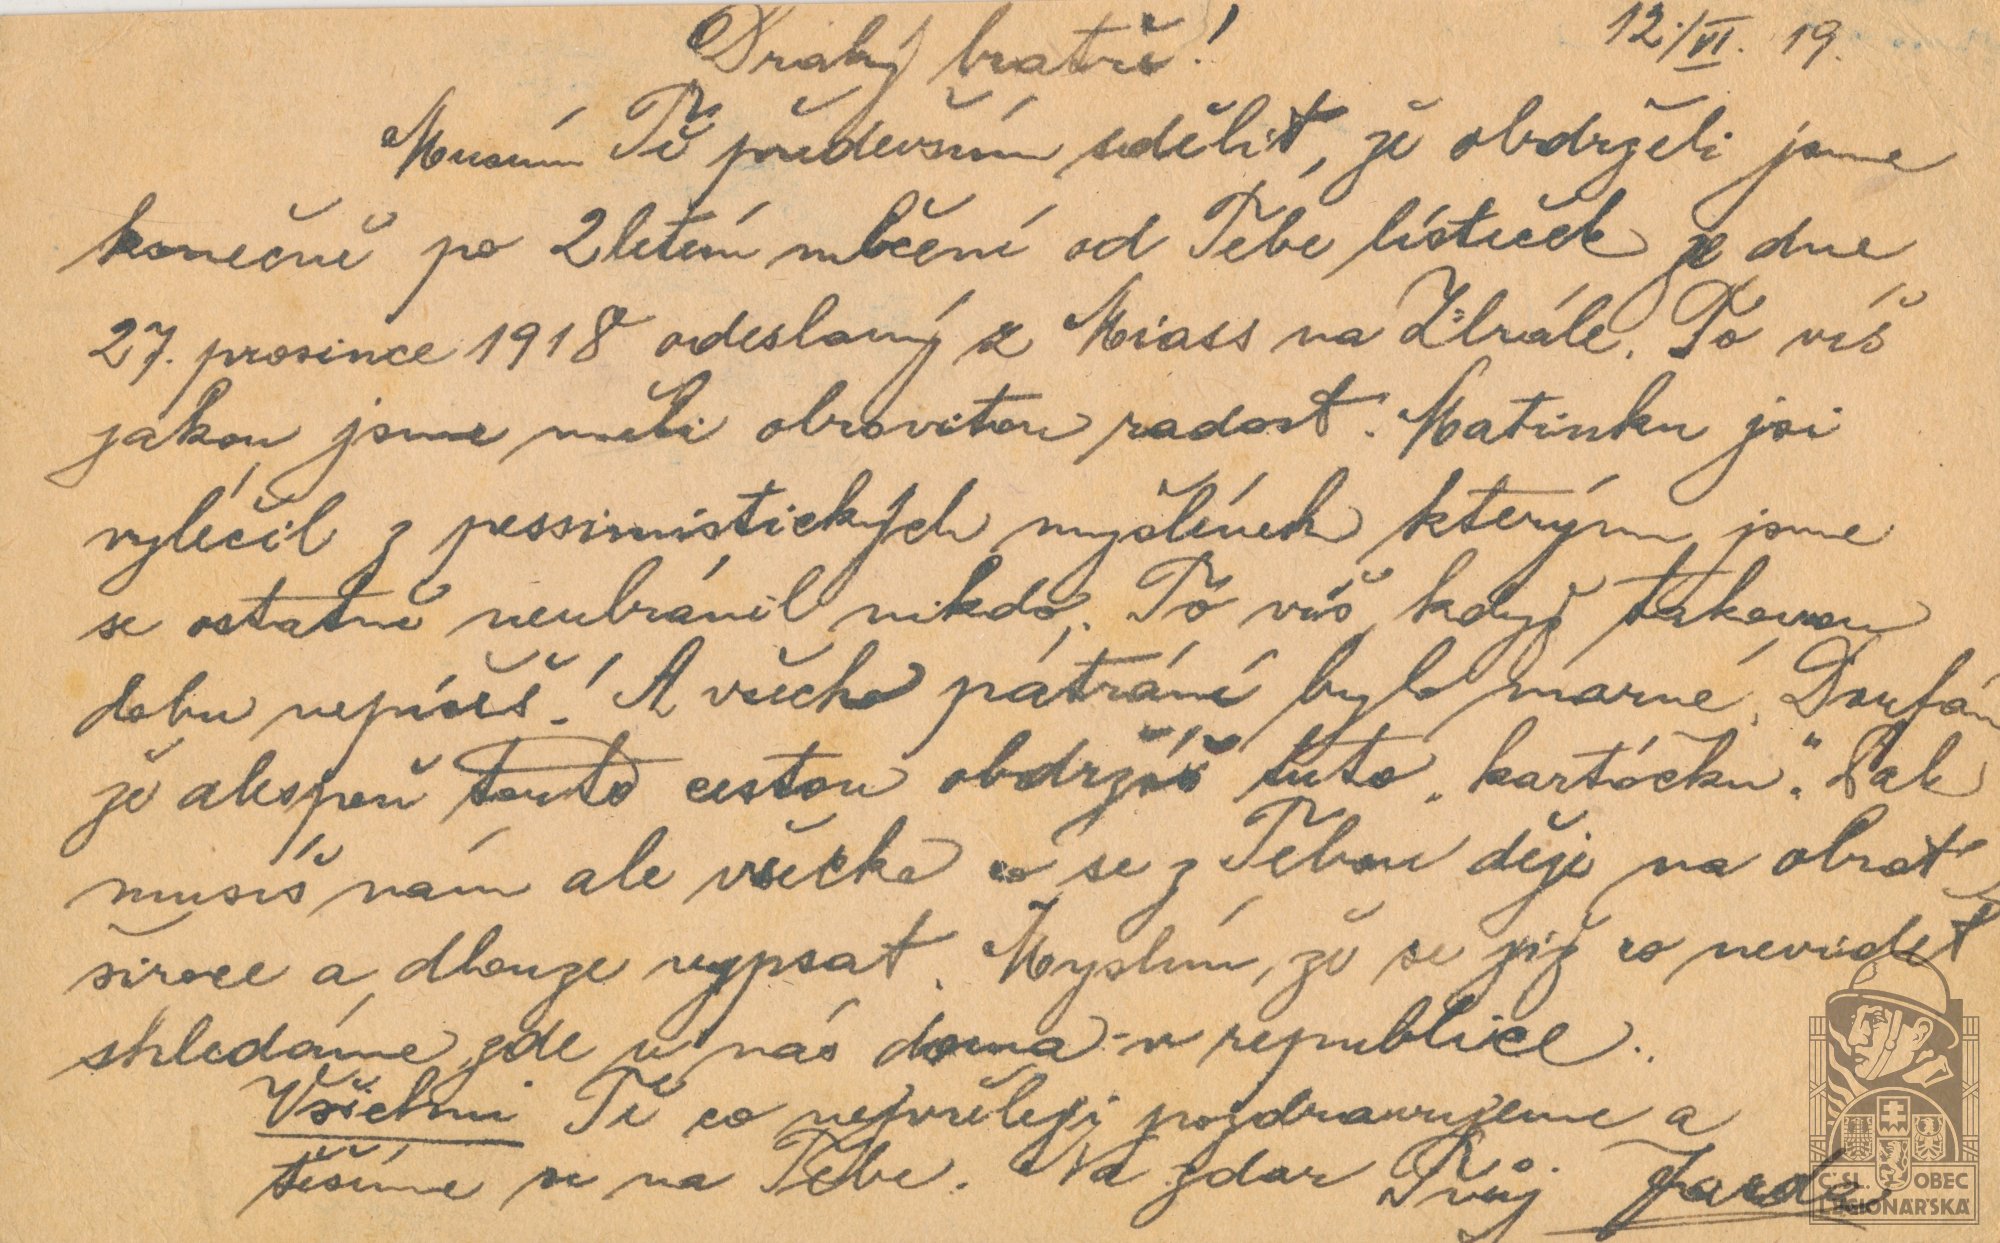 Drahý bratře!
12./VI. 19.
Musím Tě především sdělit, že obdrželi jsme
konečně po 2letém mlčení od Tebe lísteček ze dne
27. prosince 1918 odeslaný z Miass na Urále. To víš
jakou jsme měli obrovitou radost. Matinku jsi
vyléčil z pessimistických myšlének kterým jsme
se ostatně neubránil nikdo. To víš když takovou
dobu nepíšeš! A všecko pátrání bylo marné. Doufám
že alespoň touto cestou obdržíš tuto „kartóčku“. Pak
musíš nám ale všecko co se z Tebou děje na obrat
široce a dlouze vypsat. Myslím, že se již co nevidět
shledáme zde u nás doma - v republice..
Všichni Tě co nejvřeleji pozdravujeme a
těšíme se na Tebe. Na zdar Tvůj Jarda
Č.SL. OBEC
LEGIONÁŘSKÁ